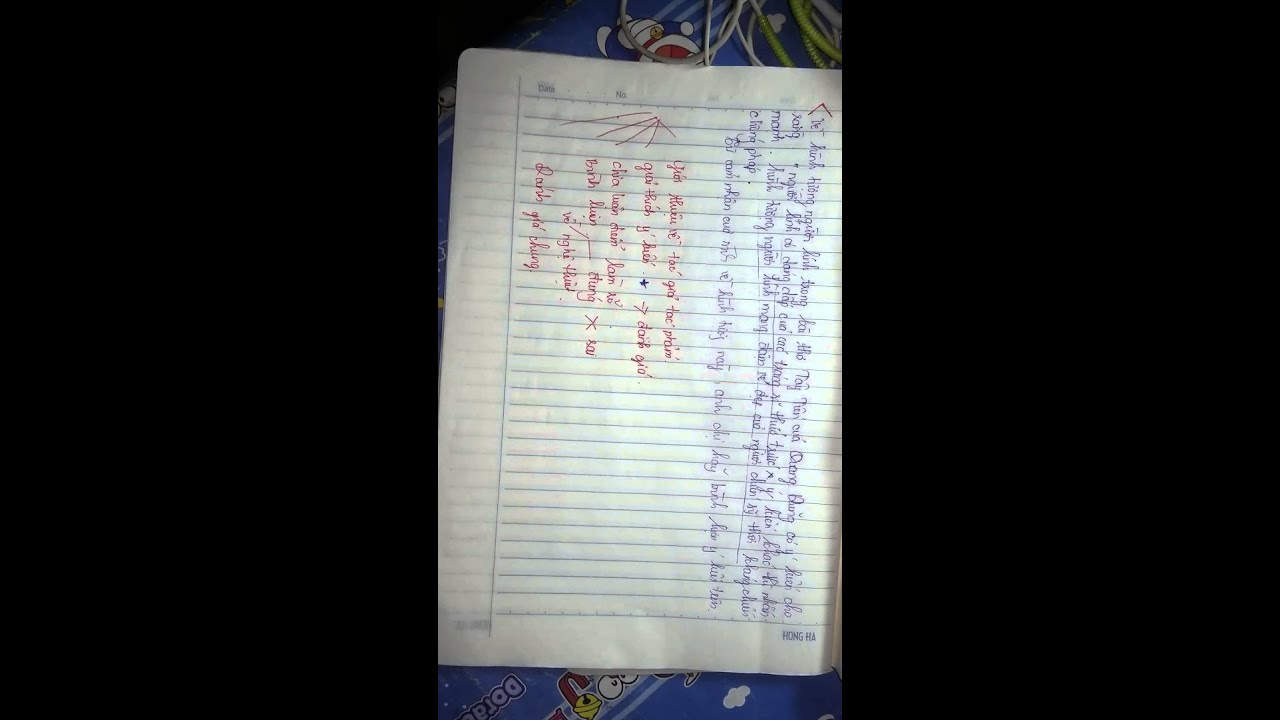 HONG HA
Về hình tượng người lính trong bài thơ Tây Tiến của Quang Dũng có ý kiến cho
rằng " người lính có dáng dấp của các tráng sĩ thuở trước" ý kiến khác thì nhấn
mạnh . hình tượng người lính mang đậm vẻ đẹp của người chiến sỹ thời kháng chiến
chống pháp .
Từ cảm nhận của mình về hình này , anh chị hãy bình luận ý kiến trên.
Giới thiệu về tác giả tác phẩm
giải thích ý kiến . * → đánh giá .
chia luận điểm làm rõ
Bình luận đúng X sai
về nghệ thuật .
Đánh giá chung
Date
No.
Doraemon